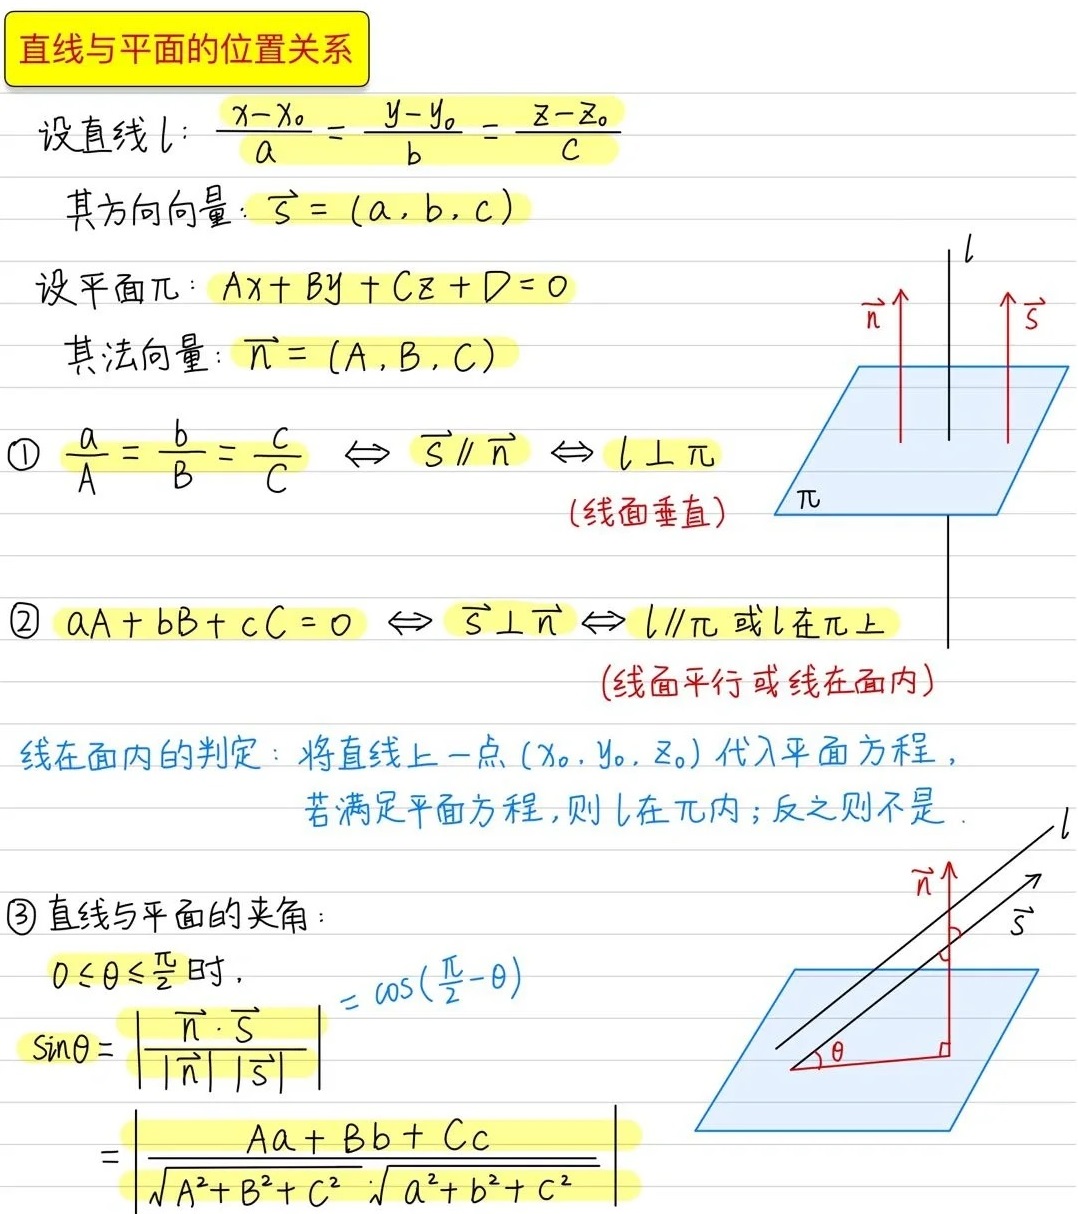 直线与平面的位置关系
设直线l: (x-x₀)/a = (y-y₀)/b = (z-z₀)/c
其方向向量: s⃗ = (a, b, c)
设平面π: Ax + By + Cz + D = 0
其法向量: n⃗ = (A, B, C)
l
n⃗
s⃗
π
① a/A = b/B = c/C ⇔ s⃗ ∥ n⃗ ⇔ l ⊥ π
(线面垂直)
② aA + bB + cC = 0 ⇔ s⃗ ⊥ n⃗ ⇔ l∥π 或 l 在π上
(线面平行或线在面内)
线在面内的判定: 将直线上一点 (x₀, y₀, z₀) 代入平面方程,
若满足平面方程,则l在π内;反之则不是.
③ 直线与平面的夹角:
0 ≤ θ ≤ π/2 时,
sinθ = |n⃗·s⃗ / (|n⃗| |s⃗|)| = cos(π/2 - θ)
= |(Aa + Bb + Cc) / (√(A²+B²+C²) · √(a²+b²+c²))|
l
n⃗
s⃗
θ